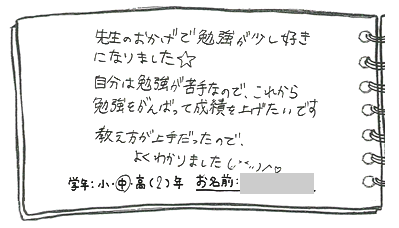 先生のおかげで勉強が少し好き
になりました☆
自分は勉強が苦手なので、これから
勉強をがんばって成績を上げたいです
教え方が上手だったので、
よくわかりました(..^^..)ノ♡
学年:小・中・高(2)年 お名前: